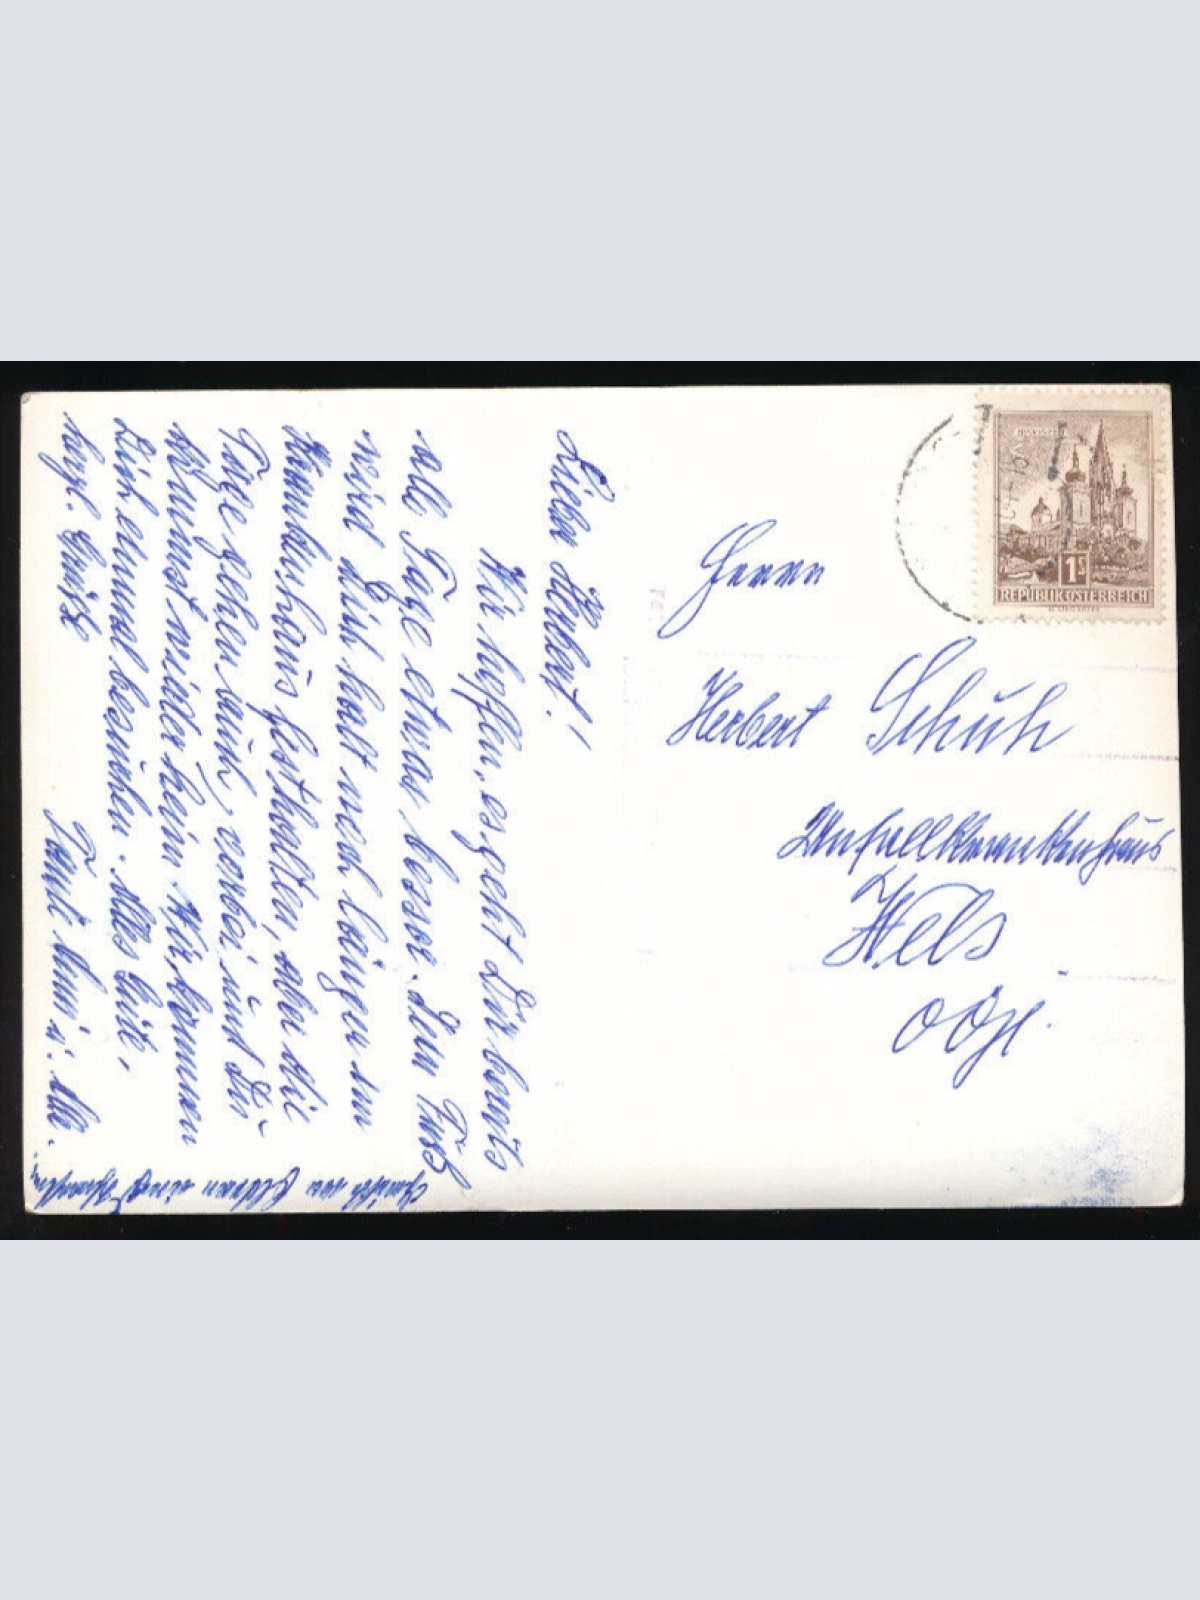 Lieber Herbert!
Wir hoffen, es geht Dir bereits
alle Tage etwas besser. Dein Fuß
wird Dich halt noch länger im
Krankenhaus festhalten, aber die
Tage gehen auch vorbei und Du
kommst wieder heim. Wir kommen
Dich einmal besuchen. Alles Gute,
herzl. Grüße
Tante Anni u.
Herrn
Herbert Schuh
Unfallkrankenhaus
Wels
OÖ.
1S
REPUBLIK ÖSTERREICH